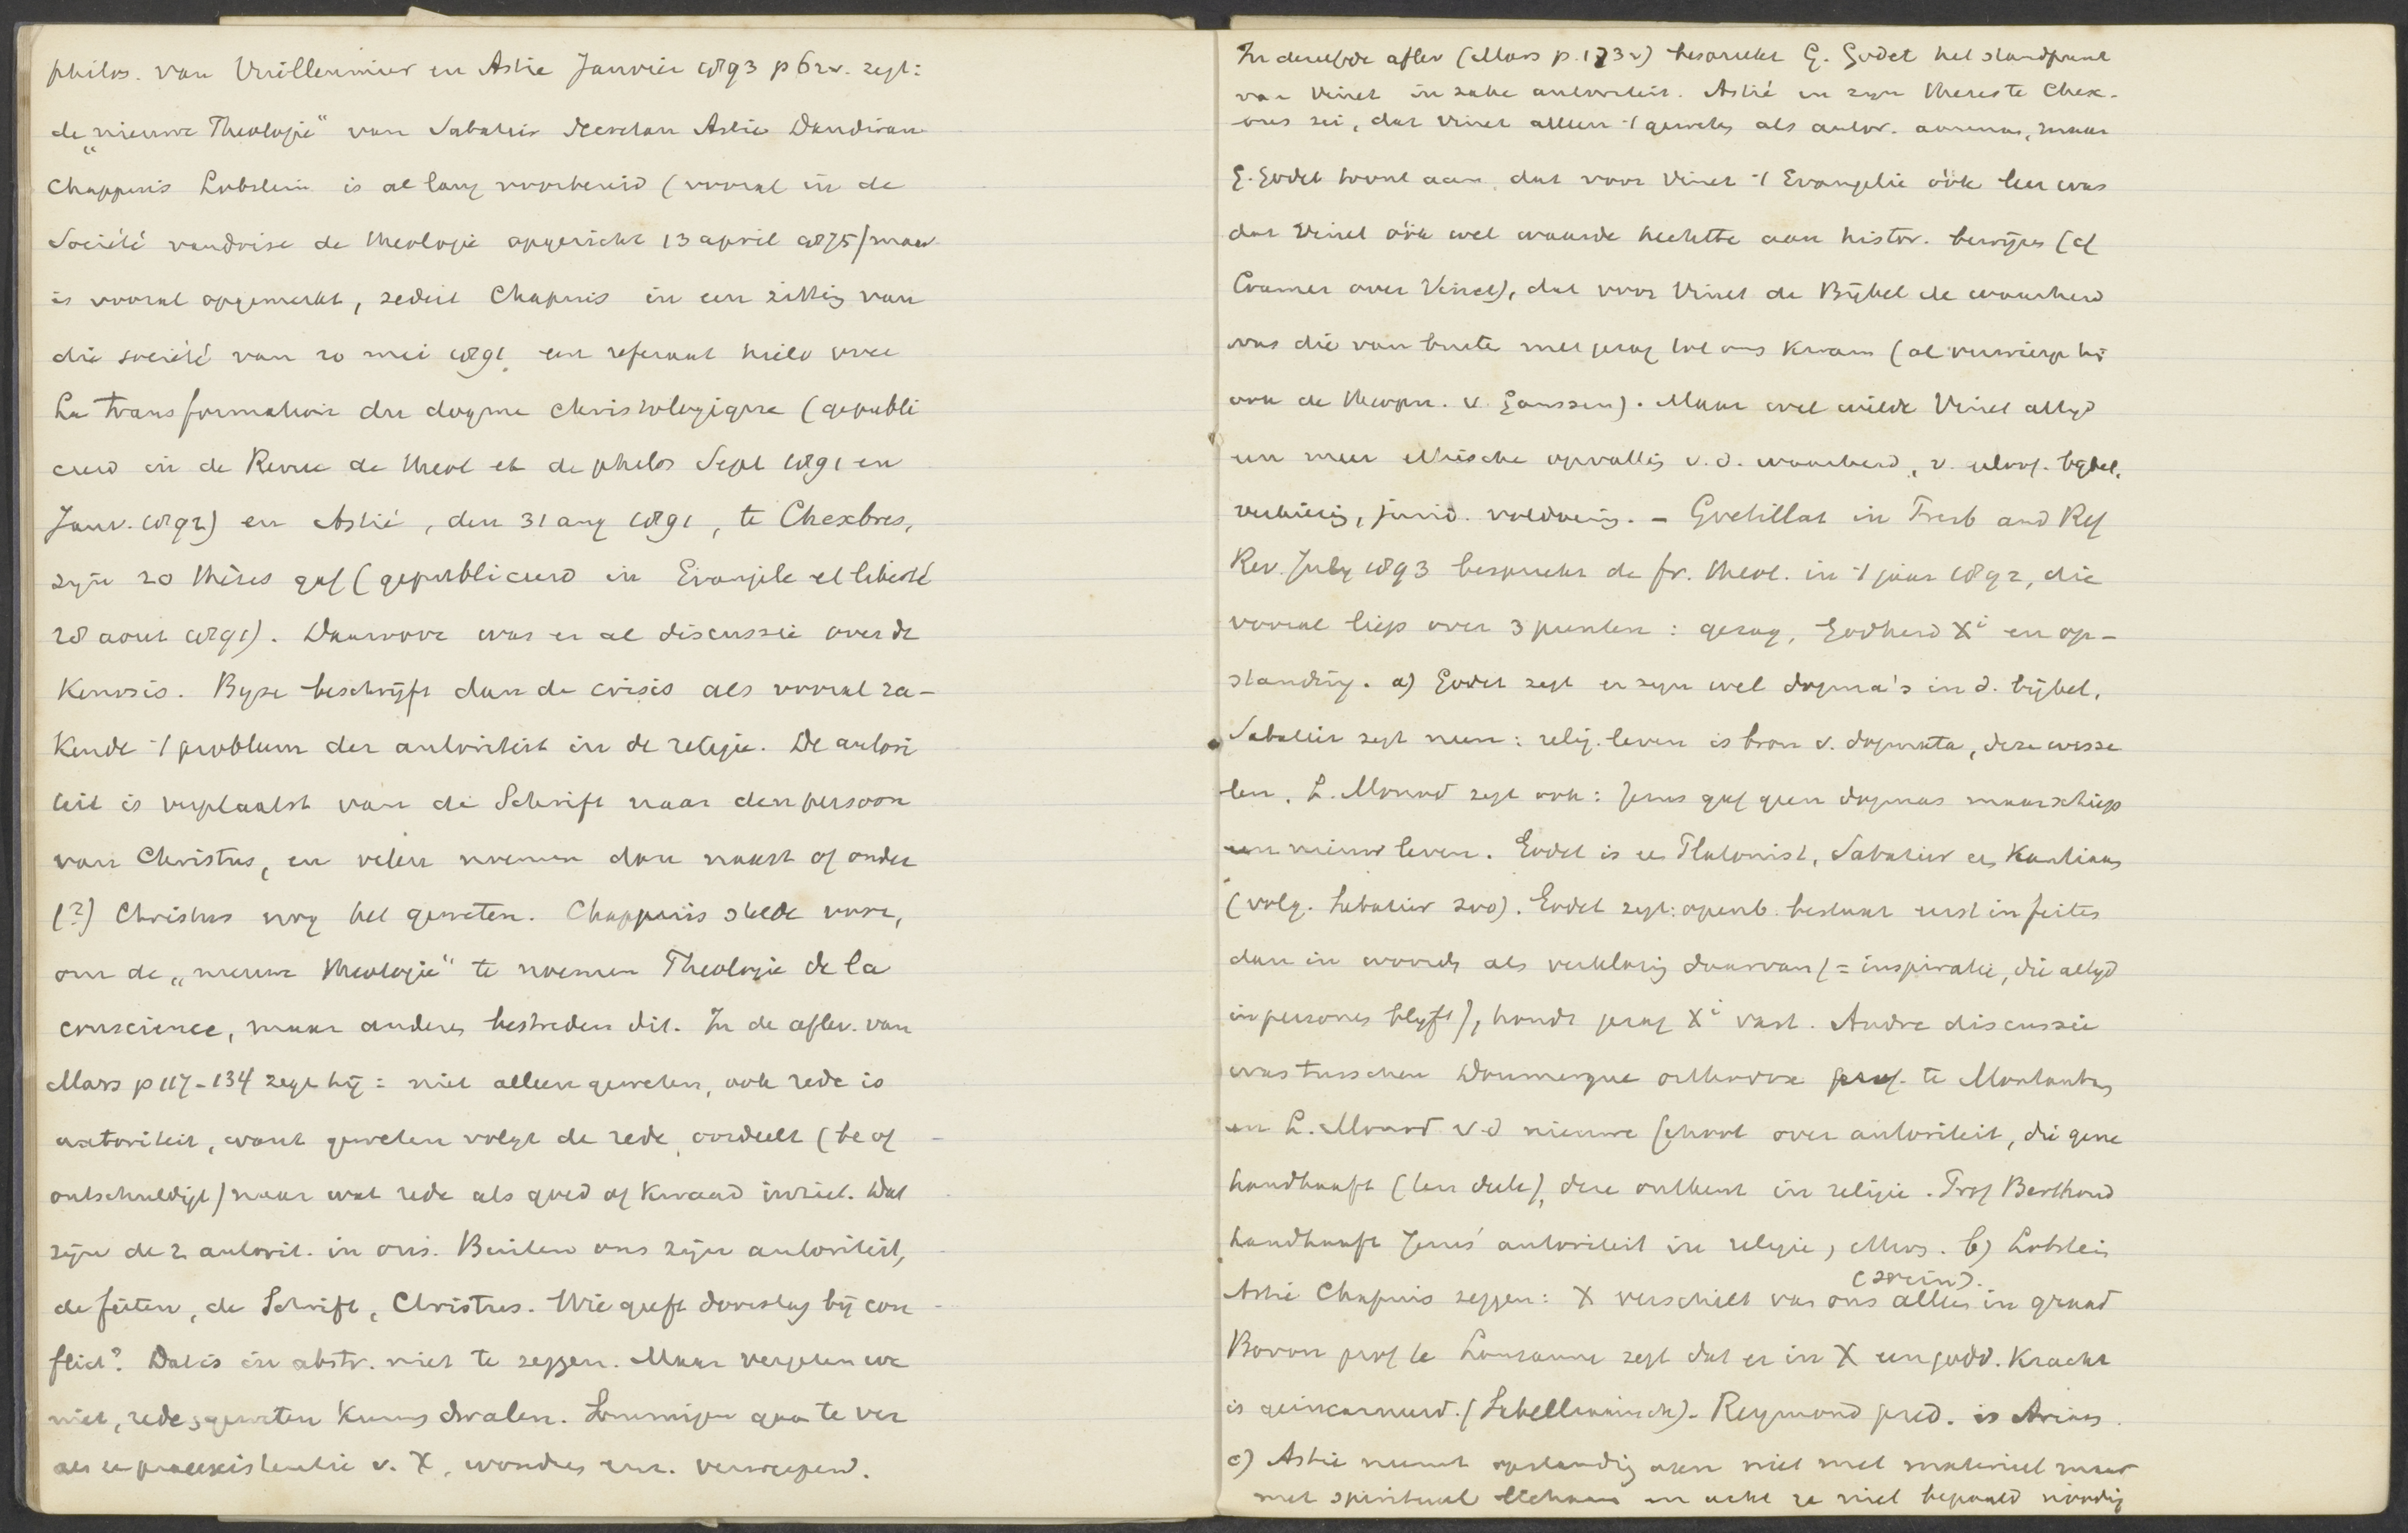 philos. van Vuilleumier en Astié Janvier 1893 p 62v. zegt:
de „nieuwe Theologie" van Sabatier Secretan Astié Dandiran
Chappuis Lobstein is al lang voorbereid (vooral in de
Société vaudoise de theologie opgericht 13 april 1875) maar
is vooral opgemerkt, sedert Chapuis in een zitting van
die société van 20 mei 1891 een referaat hield over
La transformation du dogme christologique (gepubli
ceerd in de Revue de theol et de philos Sept 1891 en
Janv. 1892) en Astié, den 31 aug 1891, te Chexbres,
zijn 20 thèses gaf (gepubliceerd in Evangile et liberté
28 aout 1891). Daarvoor was er al discussie over de
Kenosis. Byse beschrijft dan de crisis als vooral ra-
kende 't probleem der autoriteit in de religie. De autori
teit is verplaatst van de Schrift naar den persoon
van Christus, en velen noemen dan naast of onder
(?) Christus nog het geweten. Chappuis stelde voor,
om de „nieuwe theologie" te noemen Theologie de la
conscience, maar anderen bestreden dit. In de aflev. van
Mars p 117-134 zegt hij: niet alleen geweten, ook rede is
autoriteit, want geweten volgt de rede, oordeelt (be of
ontschuldigt) naar wat rede als goed of kwaad inziet. Dat
zijn de 2 autorit. in ons. Buiten ons zijn autoriteit,
de feiten, de Schrift, Christus. Wie geeft doorslag bij con
flict? Dat is in abstr. niet te zeggen. Maar vergeten we
niet, rede, geweten kunnen dwalen. Sommigen gaan te ver
als ze praeexistentie v. X, wondren enz. verwerpend.
In dezelfde aflev (Mars p. 173v) bespreekt G. Godet het standpunt
van Vinet in zake autoriteit. Astié in zijn theses te Chex-
bres zei, dat Vinet alleen 't geweten als autor. aannam, maar
G. Godet toont aan, dat voor Vinet 't Evangelie óók leer was
dat Vinet óók wel waarde hechtte aan histor. bewijzen (cf
Cramer over Vinet), dat voor Vinet de Bijbel de waarheid
was die van buiten met gezag tot ons kwam (al verwierp hij
ook de theopn. v. Gaussen). Maar wel wilde Vinet altijd
een meer ethische opvatting v.d. waarheid, v. geloof. bijbel,
verlossing, jurid. voldoening. - Gretillat in Presb and Ref
Rev. July 1893 bespreekt de fr. theol. in 't jaar 1892, die
vooral liep over 3 punten: gezag, Godheid Xi en op-
standing. a) Godet zegt er zijn wel dogma's in d. bijbel,
Sabatier zegt neen: relig. leven is bron v. dogmata, deze wisse
len. L. Monod zegt ook: Jezus gaf geen dogmas maar schiep
een nieuw leven. Godet is een Platonist, Sabatier een Kantiaan
(volg. Sabatier zoo). Godet zegt: openb. bestaat eerst in feiten
dan in woorden als verklaring daarvan (= inspiratie, die altijd
in personen blijft), houdt gezag Xi vast. Andre discussie
was tusschen Doumergue orthodox prof. te Montauban
en L. Monod v.d nieuwe school over autoriteit, die gene
handhaaft (ten deele), deze ontkent in religie. Prof Berthoud
handhaaft Jezus' autoriteit in religie, Mos. b) Lobstein
Astié Chapuis zeggen: X verschilt van ons alleen in graad
Bovon prof te Lausanne zegt dat er in X een godd. kracht
is geincarneerd. (Sabelliaansch). Reymond pred. is Ariaan.
c) Astié neemt opstanding aan niet met materieel maar
met spiritueel lichaam en acht ze niet bepaald noodig